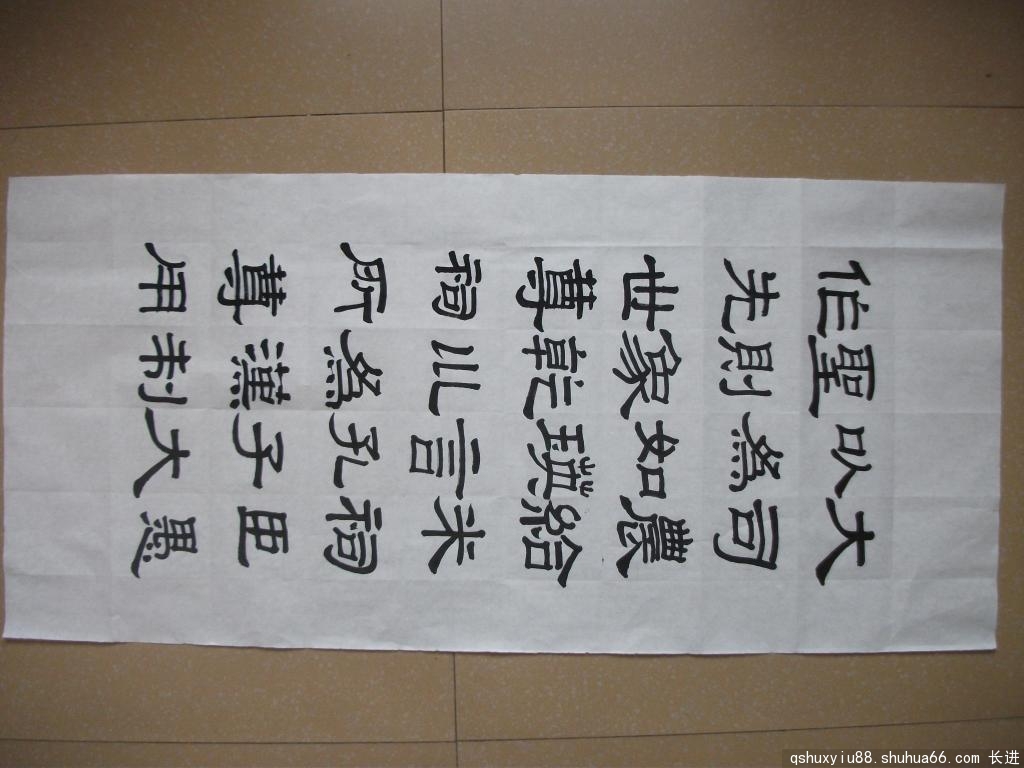 大司農給米祠臣愚
以為如瑛言孔子大
聖則象乾巛為漢制
作先世尊祠所尊用
qshuxyiu88.shuhua66.com 长进